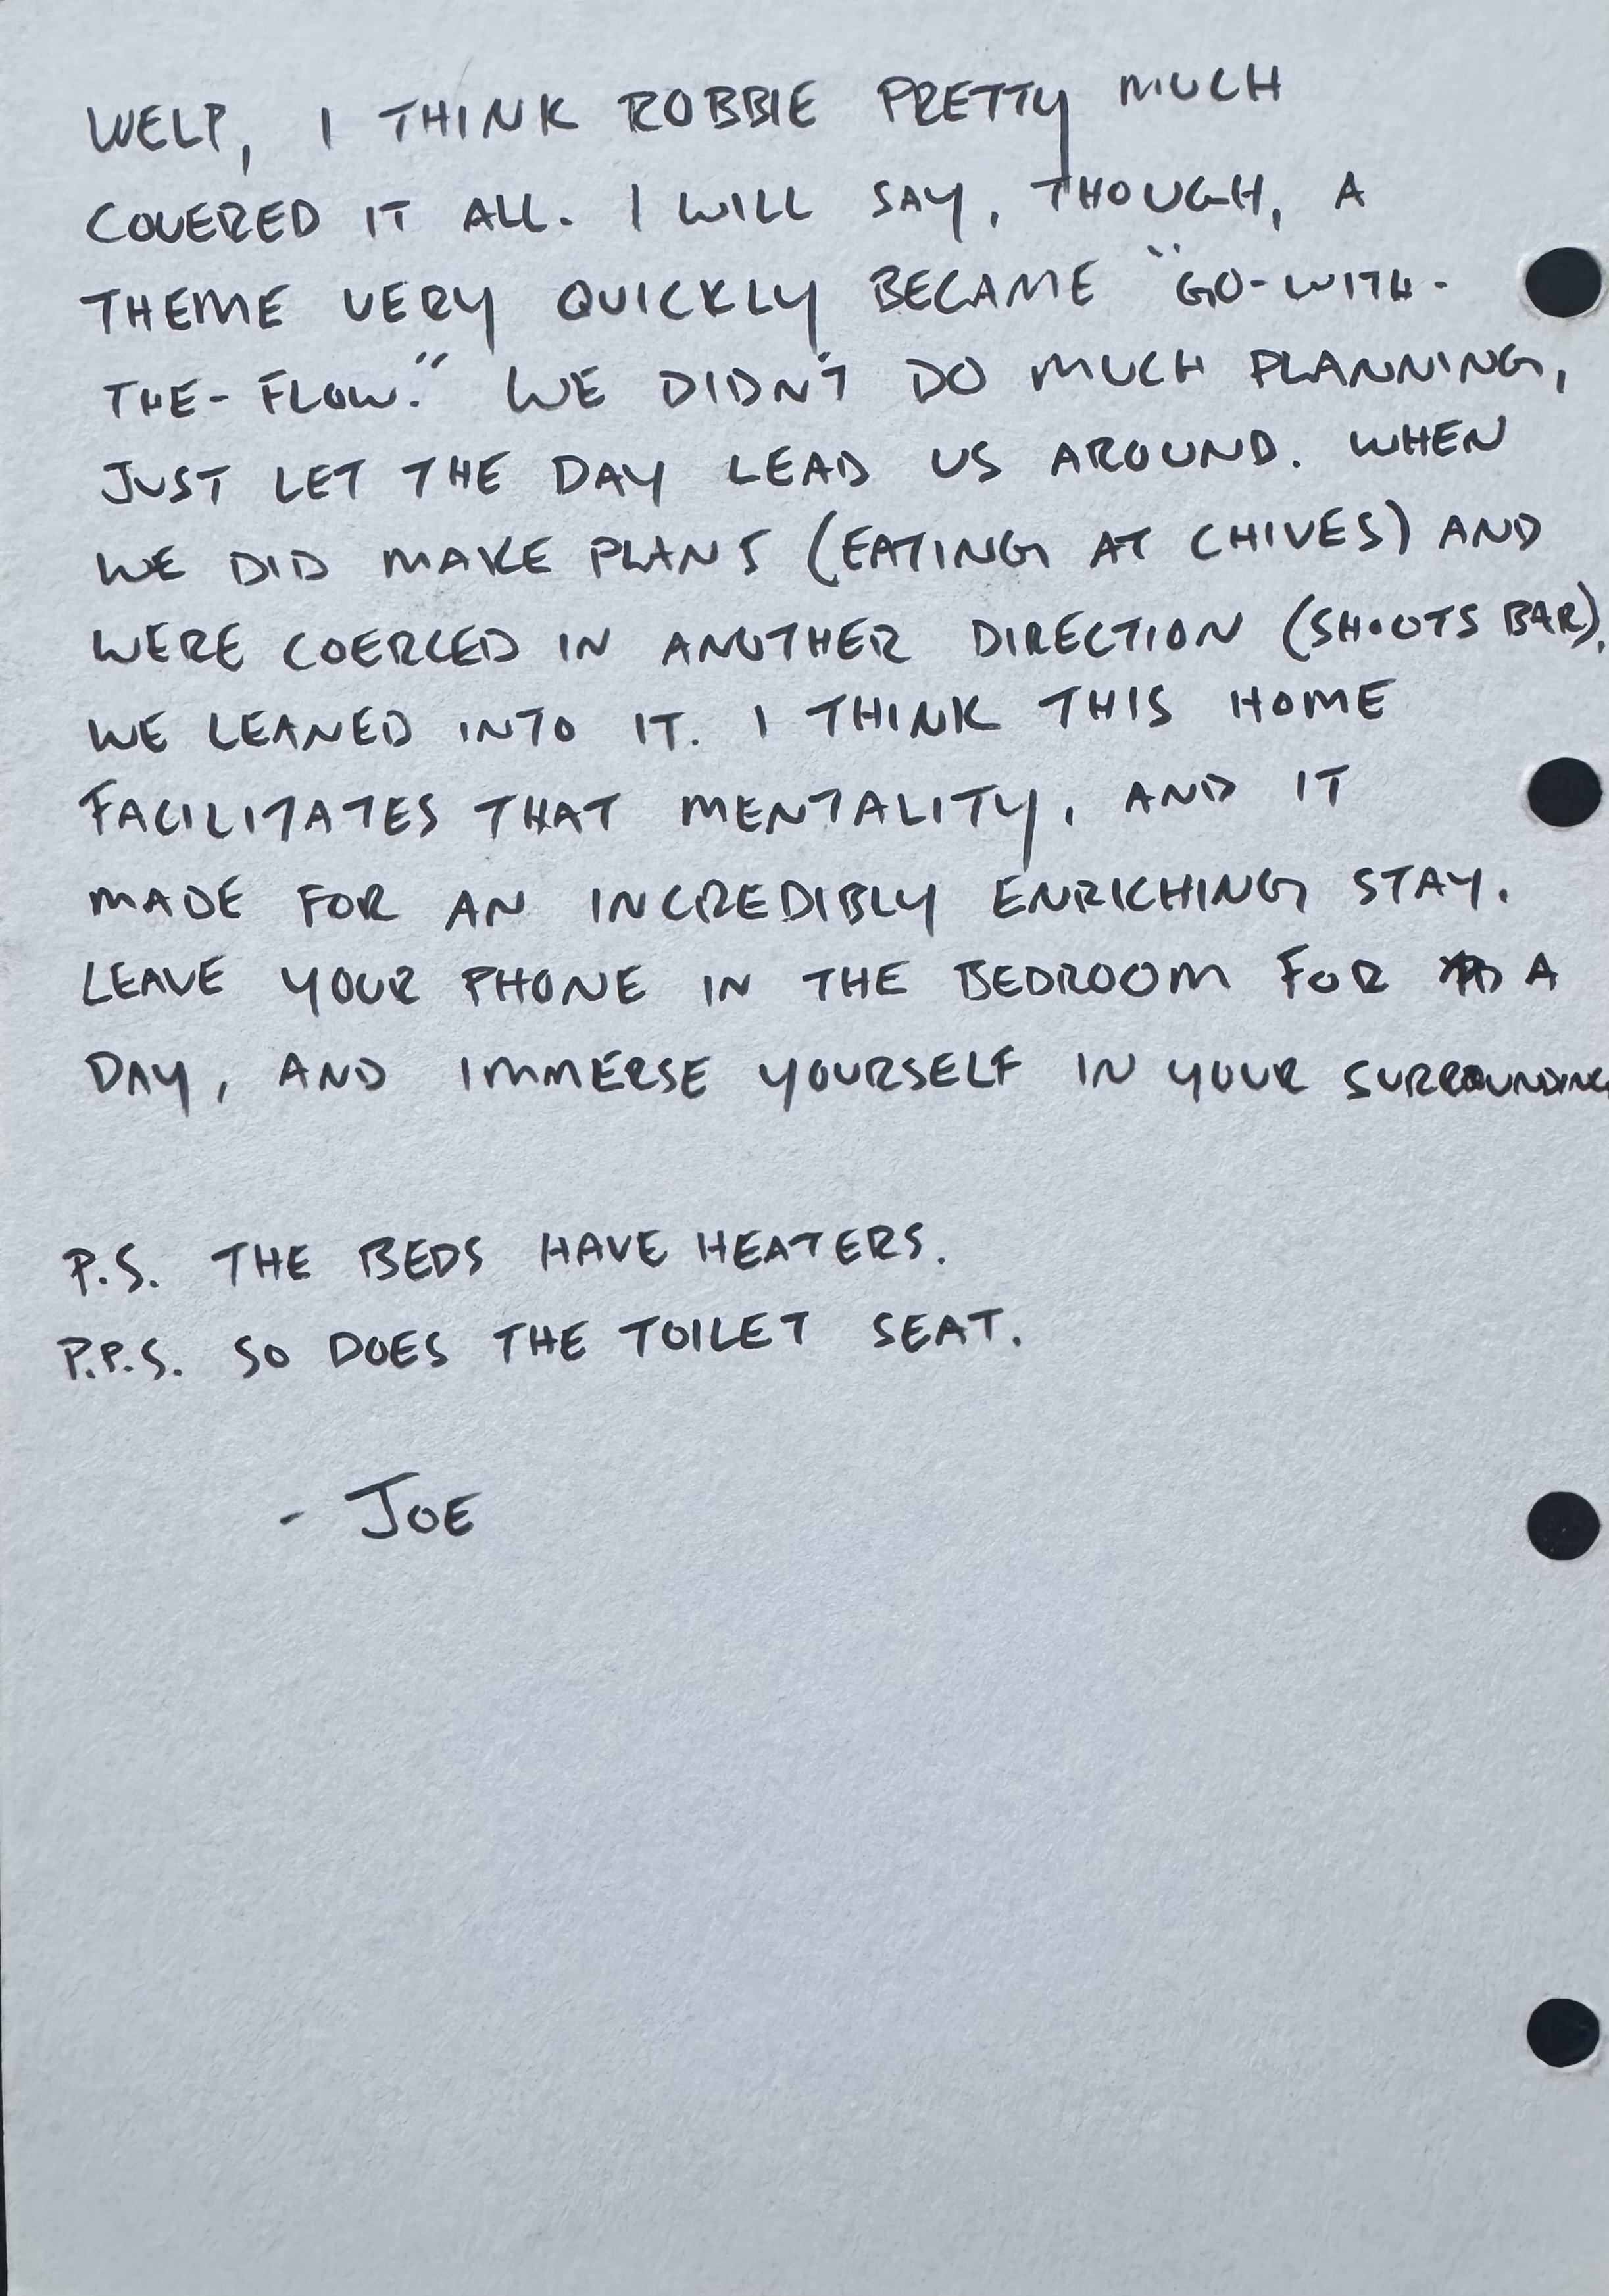 WELP, I THINK ROBBIE PRETTY MUCH
COVERED IT ALL. I WILL SAY, THOUGH, A
THEME VERY QUICKLY BECAME "GO-WITH-
THE-FLOW." WE DIDN'T DO MUCH PLANNING,
JUST LET THE DAY LEAD US AROUND. WHEN
WE DID MAKE PLANS (EATING AT CHIVES) AND
WERE COERCED IN ANOTHER DIRECTION (SHOOTS BAR),
WE LEANED INTO IT. I THINK THIS HOME
FACILITATES THAT MENTALITY, AND IT
MADE FOR AN INCREDIBLY ENRICHING STAY.
LEAVE YOUR PHONE IN THE BEDROOM FOR A
DAY, AND IMMERSE YOURSELF IN YOUR SURROUNDING
P.S. THE BEDS HAVE HEATERS.
P.P.S. SO DOES THE TOILET SEAT.
- JOE